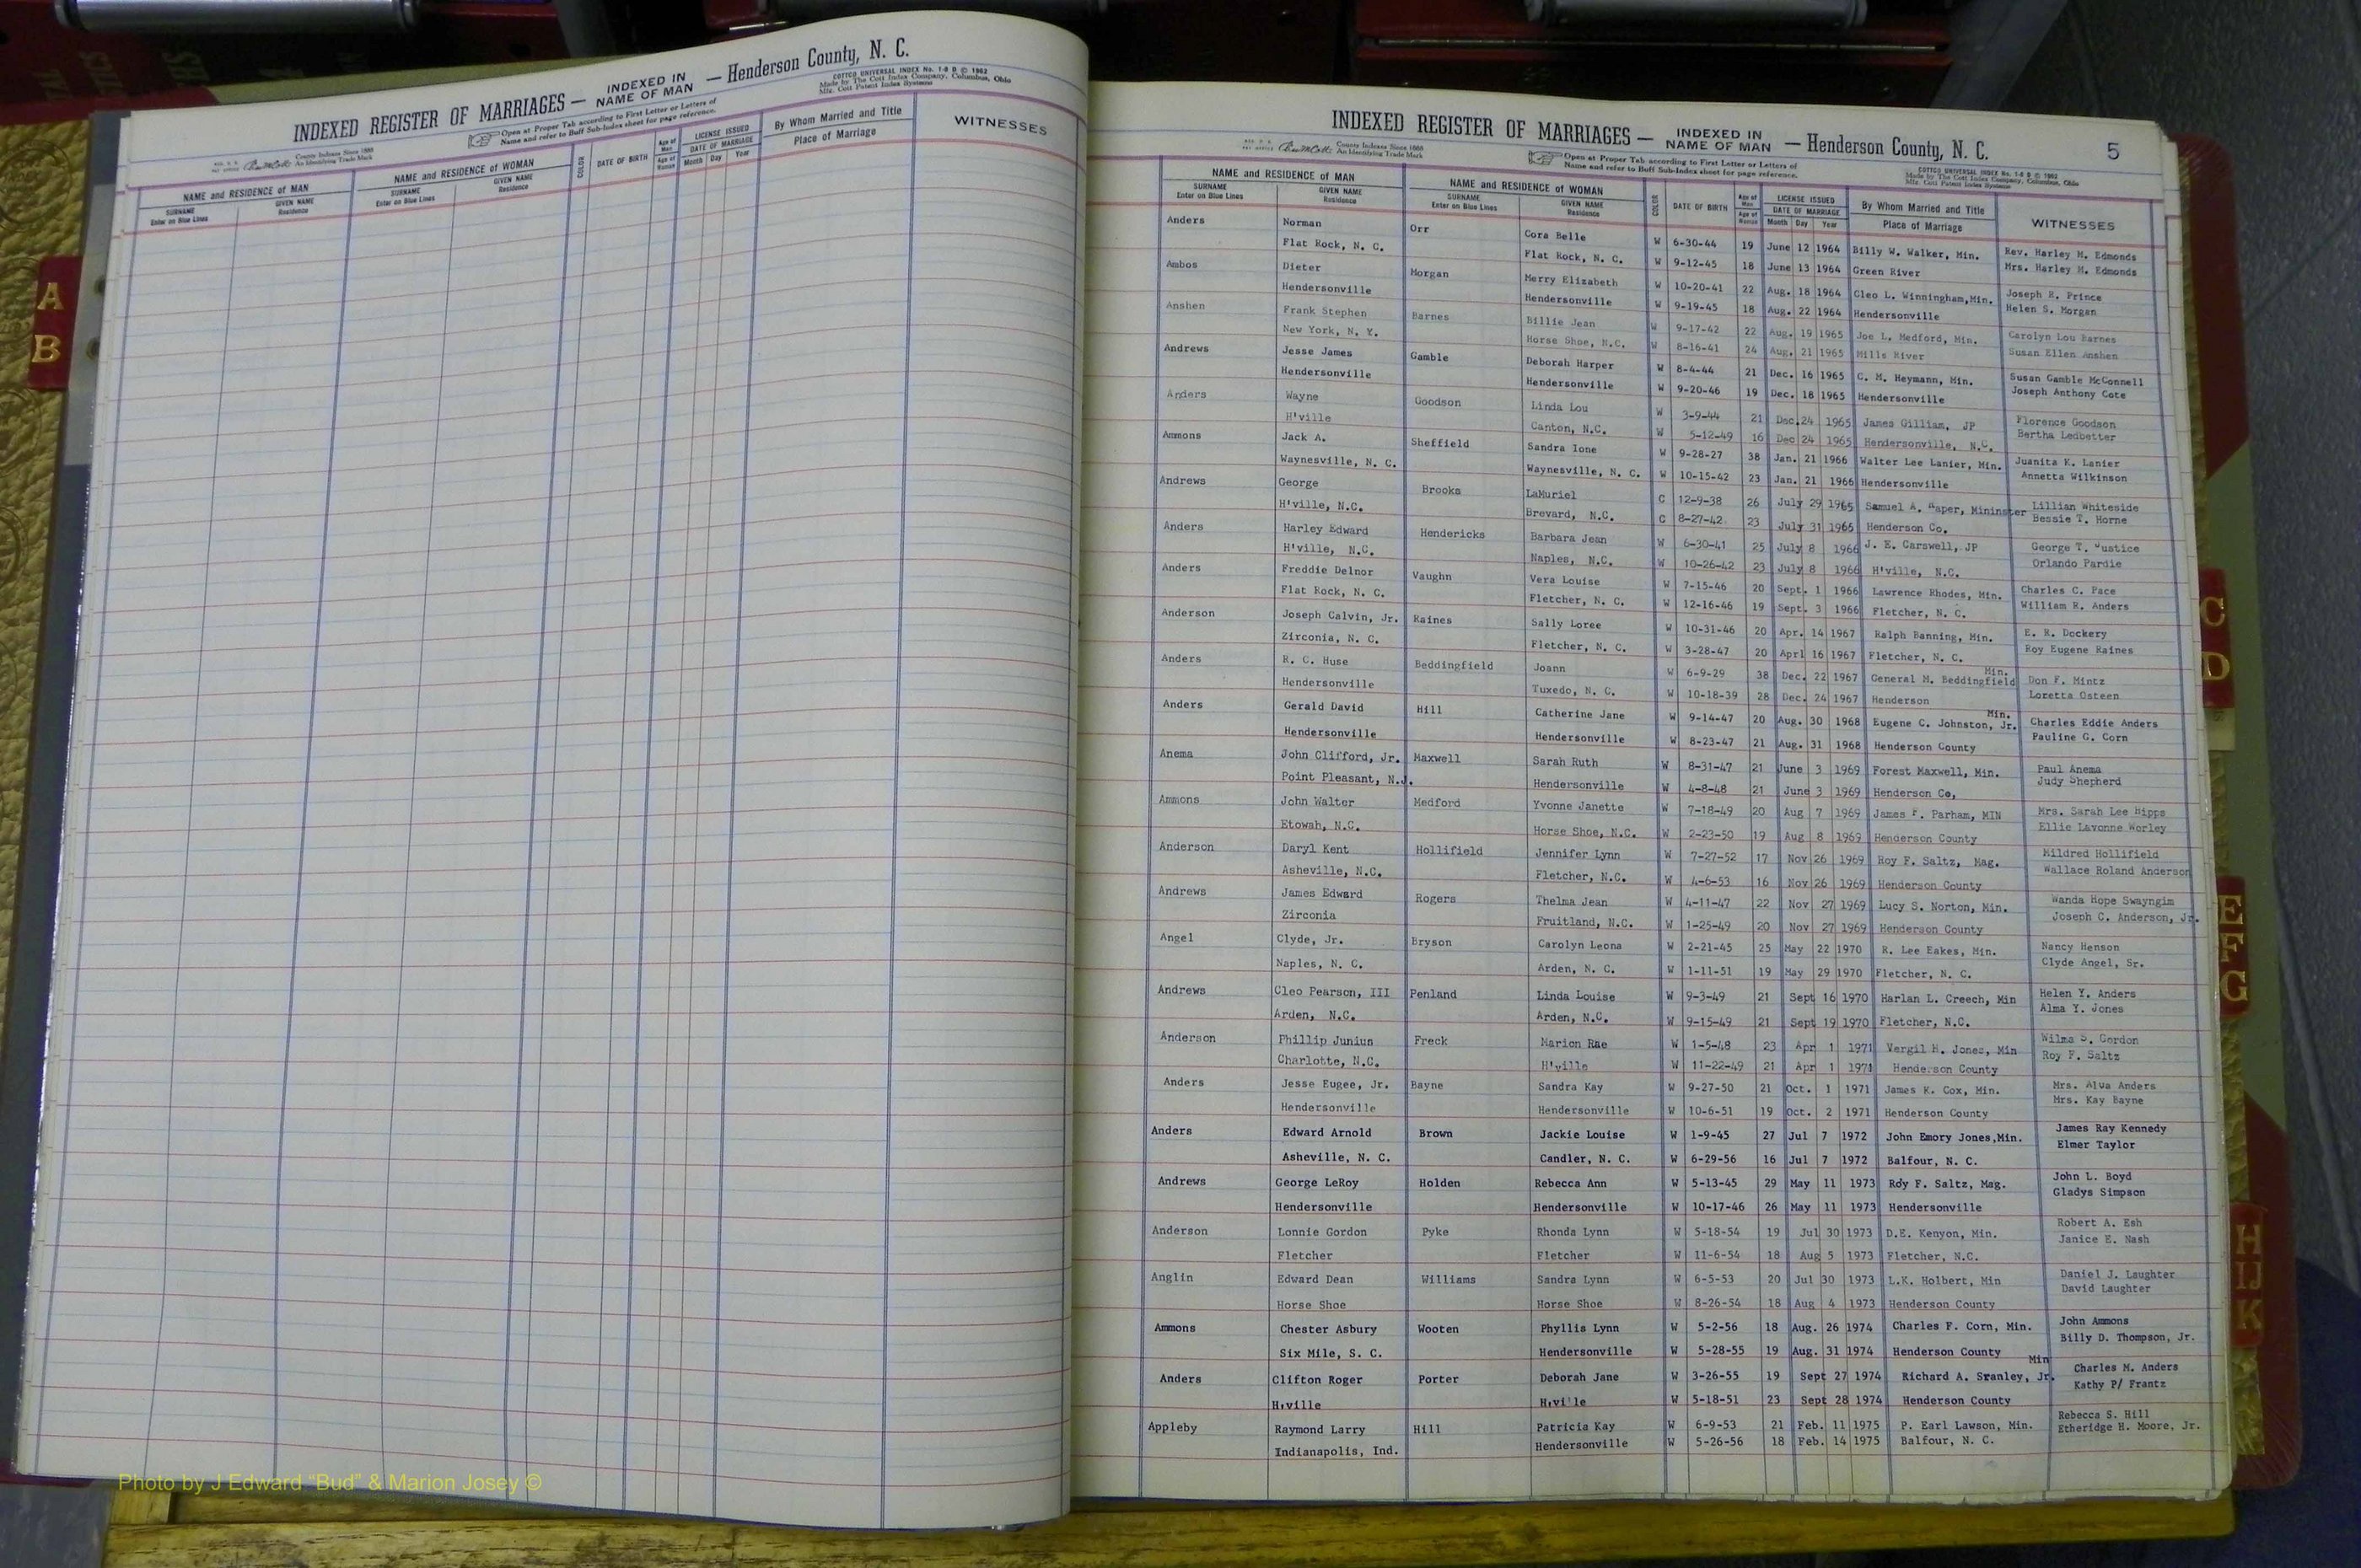 INDEXED REGISTER OF MARRIAGES — INDEXED IN NAME OF MAN — Henderson County, N. C.
COTTCO UNIVERSAL INDEX No. 1-8 D © 1962
Made by The Cott Index Company, Columbus, Ohio
Mfr. Cott Patent Index Systems
Open at Proper Tab according to First Letter or Letters of
Name and refer to Buff Sub-Index sheet for page reference.
County Indexes Since 1888
An Identifying Trade Mark
NAME and RESIDENCE of MAN
SURNAME
Enter on Blue Lines
GIVEN NAME
Residence
NAME and RESIDENCE of WOMAN
SURNAME
Enter on Blue Lines
GIVEN NAME
Residence
COLOR
DATE OF BIRTH
Age of Man
Age of Woman
LICENSE ISSUED
DATE OF MARRIAGE
Month Day Year
By Whom Married and Title
Place of Marriage
WITNESSES
A
B
INDEXED REGISTER OF MARRIAGES — INDEXED IN NAME OF MAN — Henderson County, N. C. 5
COTTCO UNIVERSAL INDEX No. 1-8 D © 1962
Made by The Cott Index Company, Columbus, Ohio
Mfr. Cott Patent Index Systems
Open at Proper Tab according to First Letter or Letters of
Name and refer to Buff Sub-Index sheet for page reference.
County Indexes Since 1888
An Identifying Trade Mark
NAME and RESIDENCE of MAN
SURNAME
Enter on Blue Lines
GIVEN NAME
Residence
NAME and RESIDENCE of WOMAN
SURNAME
Enter on Blue Lines
GIVEN NAME
Residence
COLOR
DATE OF BIRTH
Age of Man
Age of Woman
LICENSE ISSUED
DATE OF MARRIAGE
Month Day Year
By Whom Married and Title
Place of Marriage
WITNESSES
Anders Norman Orr Cora Belle W 6-30-44 19 June 12 1964 Billy W. Walker, Min. Rev. Harley M. Edmonds
Flat Rock, N. C. Flat Rock, N. C. W 9-12-45 18 June 13 1964 Green River Mrs. Harley M. Edmonds
Ambos Dieter Morgan Merry Elizabeth W 10-20-41 22 Aug. 18 1964 Cleo L. Winningham,Min. Joseph R. Prince
Hendersonville Hendersonville W 9-19-45 18 Aug. 22 1964 Hendersonville Helen S. Morgan
Anshen Frank Stephen Barnes Billie Jean W 9-17-42 22 Aug. 19 1965 Joe L. Medford, Min. Carolyn Lou Barnes
New York, N. Y. Horse Shoe, N.C. W 8-16-41 24 Aug. 21 1965 Mills River Susan Ellen Anshen
Andrews Jesse James Gamble Deborah Harper W 8-4-44 21 Dec. 16 1965 C. M. Heymann, Min. Susan Gamble McConnell
Hendersonville Hendersonville W 9-20-46 19 Dec. 18 1965 Hendersonville Joseph Anthony Cote
Anders Wayne Goodson Linda Lou W 3-9-44 21 Dec.24 1965 James Gilliam, JP Florence Goodson
H'ville Canton, N.C. W 5-12-49 16 Dec 24 1965 Hendersonville, N.C. Bertha Ledbetter
Ammons Jack A. Sheffield Sandra Ione W 9-28-27 38 Jan. 21 1966 Walter Lee Lanier, Min. Juanita K. Lanier
Waynesville, N. C. Waynesville, N. C. W 10-15-42 23 Jan. 21 1966 Hendersonville Annetta Wilkinson
Andrews George Brooks LaMuriel C 12-9-38 26 July 29 1965 Samuel A. Raper, Mininster Lillian Whiteside
H'ville, N.C. Brevard, N.C. C 8-27-42 23 July 31 1965 Henderson Co. Bessie T. Horne
Anders Harley Edward Hendericks Barbara Jean W 6-30-41 25 July 8 1966 J. E. Carswell, JP George T. Justice
H'ville, N.C. Naples, N.C. W 10-26-42 23 July 8 1966 H'ville, N.C. Orlando Pardie
Anders Freddie Delnor Vaughn Vera Louise W 7-15-46 20 Sept. 1 1966 Lawrence Rhodes, Min. Charles C. Pace
Flat Rock, N. C. Fletcher, N. C. W 12-16-46 19 Sept. 3 1966 Fletcher, N. C. William R. Anders
Anderson Joseph Calvin, Jr. Raines Sally Loree W 10-31-46 20 Apr. 14 1967 Ralph Banning, Min. E. R. Dockery
Zirconia, N. C. Fletcher, N. C. W 3-28-47 20 Aprl 16 1967 Fletcher, N. C. Roy Eugene Raines
Anders R. C. Huse Beddingfield Joann W 6-9-29 38 Dec. 22 1967 General M. Beddingfield Min. Don F. Mintz
Hendersonville Tuxedo, N. C. W 10-18-39 28 Dec. 24 1967 Henderson Loretta Osteen
Anders Gerald David Hill Catherine Jane W 9-14-47 20 Aug. 30 1968 Eugene C. Johnston, Jr. Min. Charles Eddie Anders
Hendersonville Hendersonville W 8-23-47 21 Aug. 31 1968 Henderson County Pauline G. Corn
Anema John Clifford, Jr. Maxwell Sarah Ruth W 8-31-47 21 June 3 1969 Forest Maxwell, Min. Paul Anema
Point Pleasant, N.J. Hendersonville W 4-8-48 21 June 3 1969 Henderson Co, Judy Shepherd
Ammons John Walter Medford Yvonne Janette W 7-18-49 20 Aug 7 1969 James F. Parham, MIN Mrs. Sarah Lee Hipps
Etowah, N.C. Horse Shoe, N.C. W 2-23-50 19 Aug 8 1969 Henderson County Ellie Lavonne Worley
Anderson Daryl Kent Hollifield Jennifer Lynn W 7-27-52 17 Nov 26 1969 Roy F. Saltz, Mag. Mildred Hollifield
Asheville, N.C. Fletcher, N.C. W 4-6-53 16 Nov 26 1969 Henderson County Wallace Roland Anderson
Andrews James Edward Rogers Thelma Jean W 4-11-47 22 Nov 27 1969 Lucy S. Norton, Min. Wanda Hope Swayngim
Zirconia Fruitland, N.C. W 1-25-49 20 Nov 27 1969 Henderson County Joseph C. Anderson, Jr.
Angel Clyde, Jr. Bryson Carolyn Leona W 2-21-45 25 May 22 1970 R. Lee Eakes, Min. Nancy Henson
Naples, N. C. Arden, N. C. W 1-11-51 19 May 29 1970 Fletcher, N. C. Clyde Angel, Sr.
Andrews Cleo Pearson, III Penland Linda Louise W 9-3-49 21 Sept 16 1970 Harlan L. Creech, Min Helen Y. Anders
Arden, N.C. Arden, N.C. W 9-15-49 21 Sept 19 1970 Fletcher, N.C. Alma Y. Jones
Anderson Phillip Junius Freck Marion Rae W 1-5-48 23 Apr 1 1971 Vergil H. Jones, Min Wilma S. Gordon
Charlotte, N.C. H'ville W 11-22-49 21 Apr 1 1971 Henderson County Roy F. Saltz
Anders Jesse Eugee, Jr. Bayne Sandra Kay W 9-27-50 21 Oct. 1 1971 James K. Cox, Min. Mrs. Alva Anders
Hendersonville Hendersonville W 10-6-51 19 Oct. 2 1971 Henderson County Mrs. Kay Bayne
Anders Edward Arnold Brown Jackie Louise W 1-9-45 27 Jul 7 1972 John Emory Jones,Min. James Ray Kennedy
Asheville, N. C. Candler, N. C. W 6-29-56 16 Jul 7 1972 Balfour, N. C. Elmer Taylor
Andrews George LeRoy Holden Rebecca Ann W 5-13-45 29 May 11 1973 Roy F. Saltz, Mag. John L. Boyd
Hendersonville Hendersonville W 10-17-46 26 May 11 1973 Hendersonville Gladys Simpson
Anderson Lonnie Gordon Pyke Rhonda Lynn W 5-18-54 19 Jul 30 1973 D.E. Kenyon, Min. Robert A. Esh
Fletcher Fletcher W 11-6-54 18 Aug 5 1973 Fletcher, N.C. Janice E. Nash
Anglin Edward Dean Williams Sandra Lynn W 6-5-53 20 Jul 30 1973 L.K. Holbert, Min Daniel J. Laughter
Horse Shoe Horse Shoe W 8-26-54 18 Aug 4 1973 Henderson County David Laughter
Ammons Chester Asbury Wooten Phyllis Lynn W 5-2-56 18 Aug. 26 1974 Charles F. Corn, Min. John Ammons
Six Mile, S. C. Hendersonville W 5-28-55 19 Aug. 31 1974 Henderson County Billy D. Thompson, Jr.
Anders Clifton Roger Porter Deborah Jane W 3-26-55 19 Sept 27 1974 Richard A. Sranley, Jr. Min Charles M. Anders
H'ville H'ville W 5-18-51 23 Sept 28 1974 Henderson County Kathy P/ Frantz
Appleby Raymond Larry Hill Patricia Kay W 6-9-53 21 Feb. 11 1975 P. Earl Lawson, Min. Rebecca S. Hill
Indianapolis, Ind. Hendersonville W 5-26-56 18 Feb. 14 1975 Balfour, N. C. Etheridge H. Moore, Jr.
C
D
E
F
G
H
IJ
K
Photo by J Edward “Bud” & Marion Josey ©